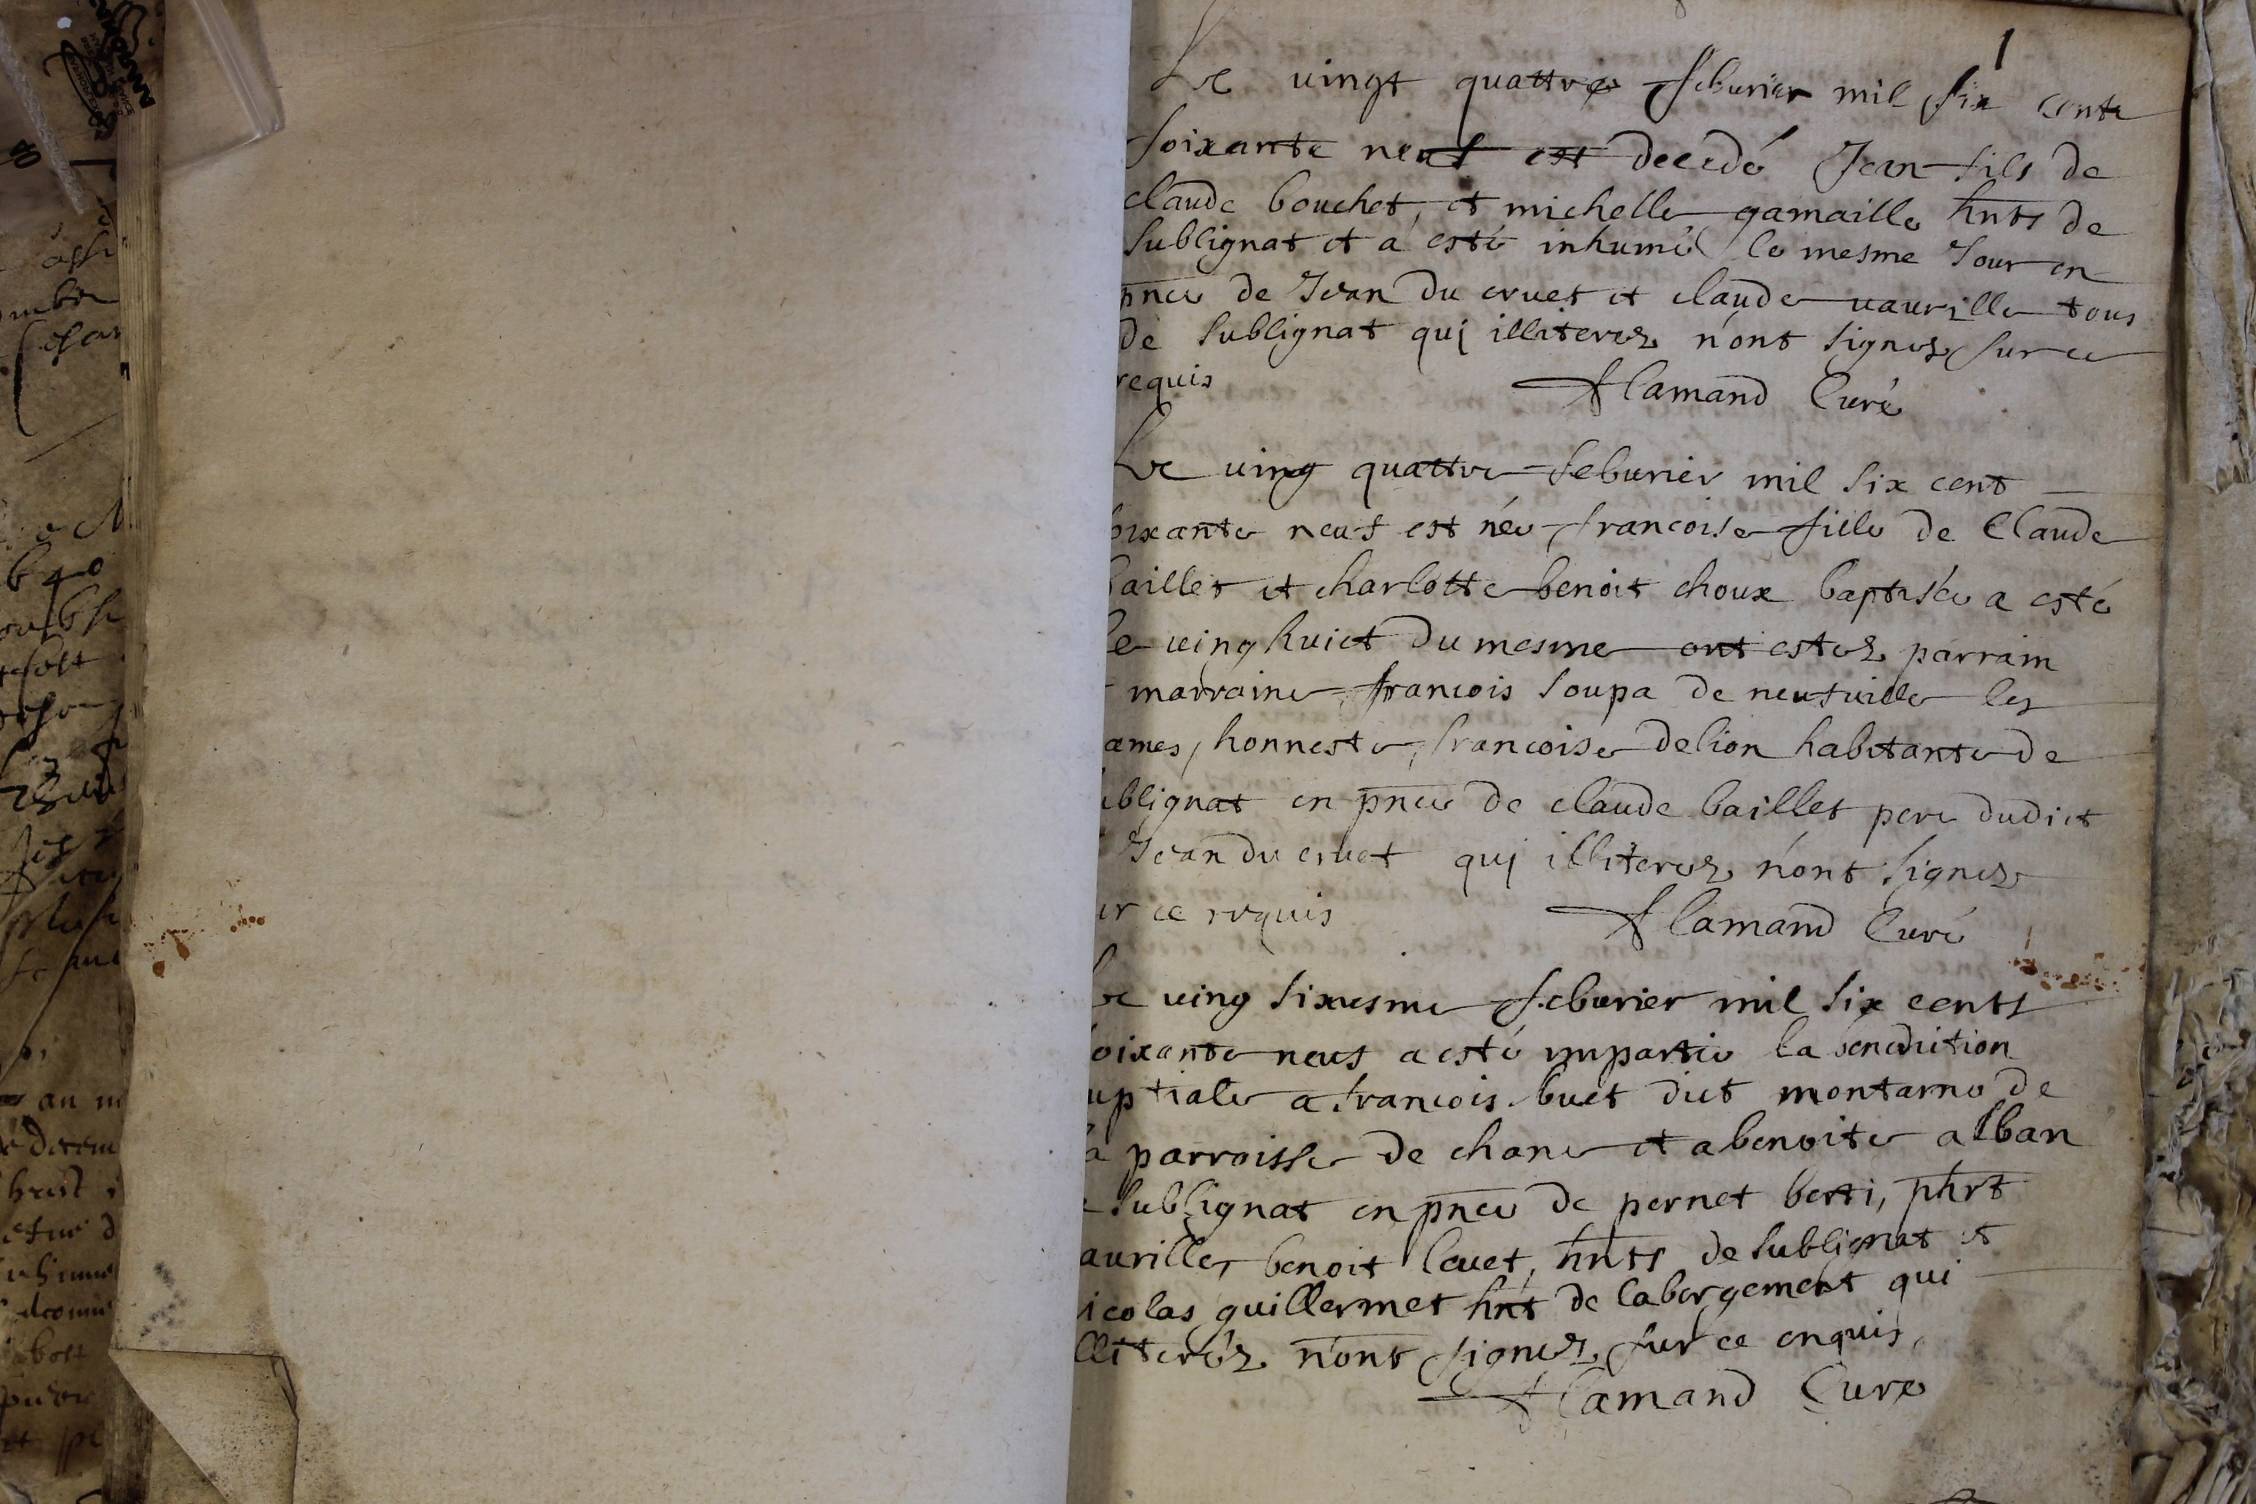 1
Le vingt quattre feburier mil six cents
soixante neuf est decedé Jean fils de
claude bouchet, et michelle gamaille hnts de
sublignat et a esté inhumé le mesme Jour en
pnce de Jean du cruet et claude uaurille tous
de sublignat qui illiterez n'ont signez sur ce
requis
flamand Curé
Le uing quattre feburier mil six cent
oixante neuf est née francoise fille de Claude
baillet et charlotte benoit choux baptisée a esté
le uing huict du mesme ont estez parrain
marraine francois soupa de neufuille les
ames, honneste francoise delion habitante de
ublignat en pnce de claude baillet pere dudict
Jean du cruet qui illiterez n'ont signez
ur ce requis
flamand Curé
Le uing sixiesme feburier mil six cents
oixante neuf a esté impartie la benediction
uptiale a francois buet dict montarno de
la parroisse de chane et a benoite alban
e sublignat en pnce de pernet berti, phrt
aurille, benoit leuet, hnts de sublignat et
icolas guillermet hnt de labergement qui
lliterez n'ont signez sur ce enquis,
flamand Curé